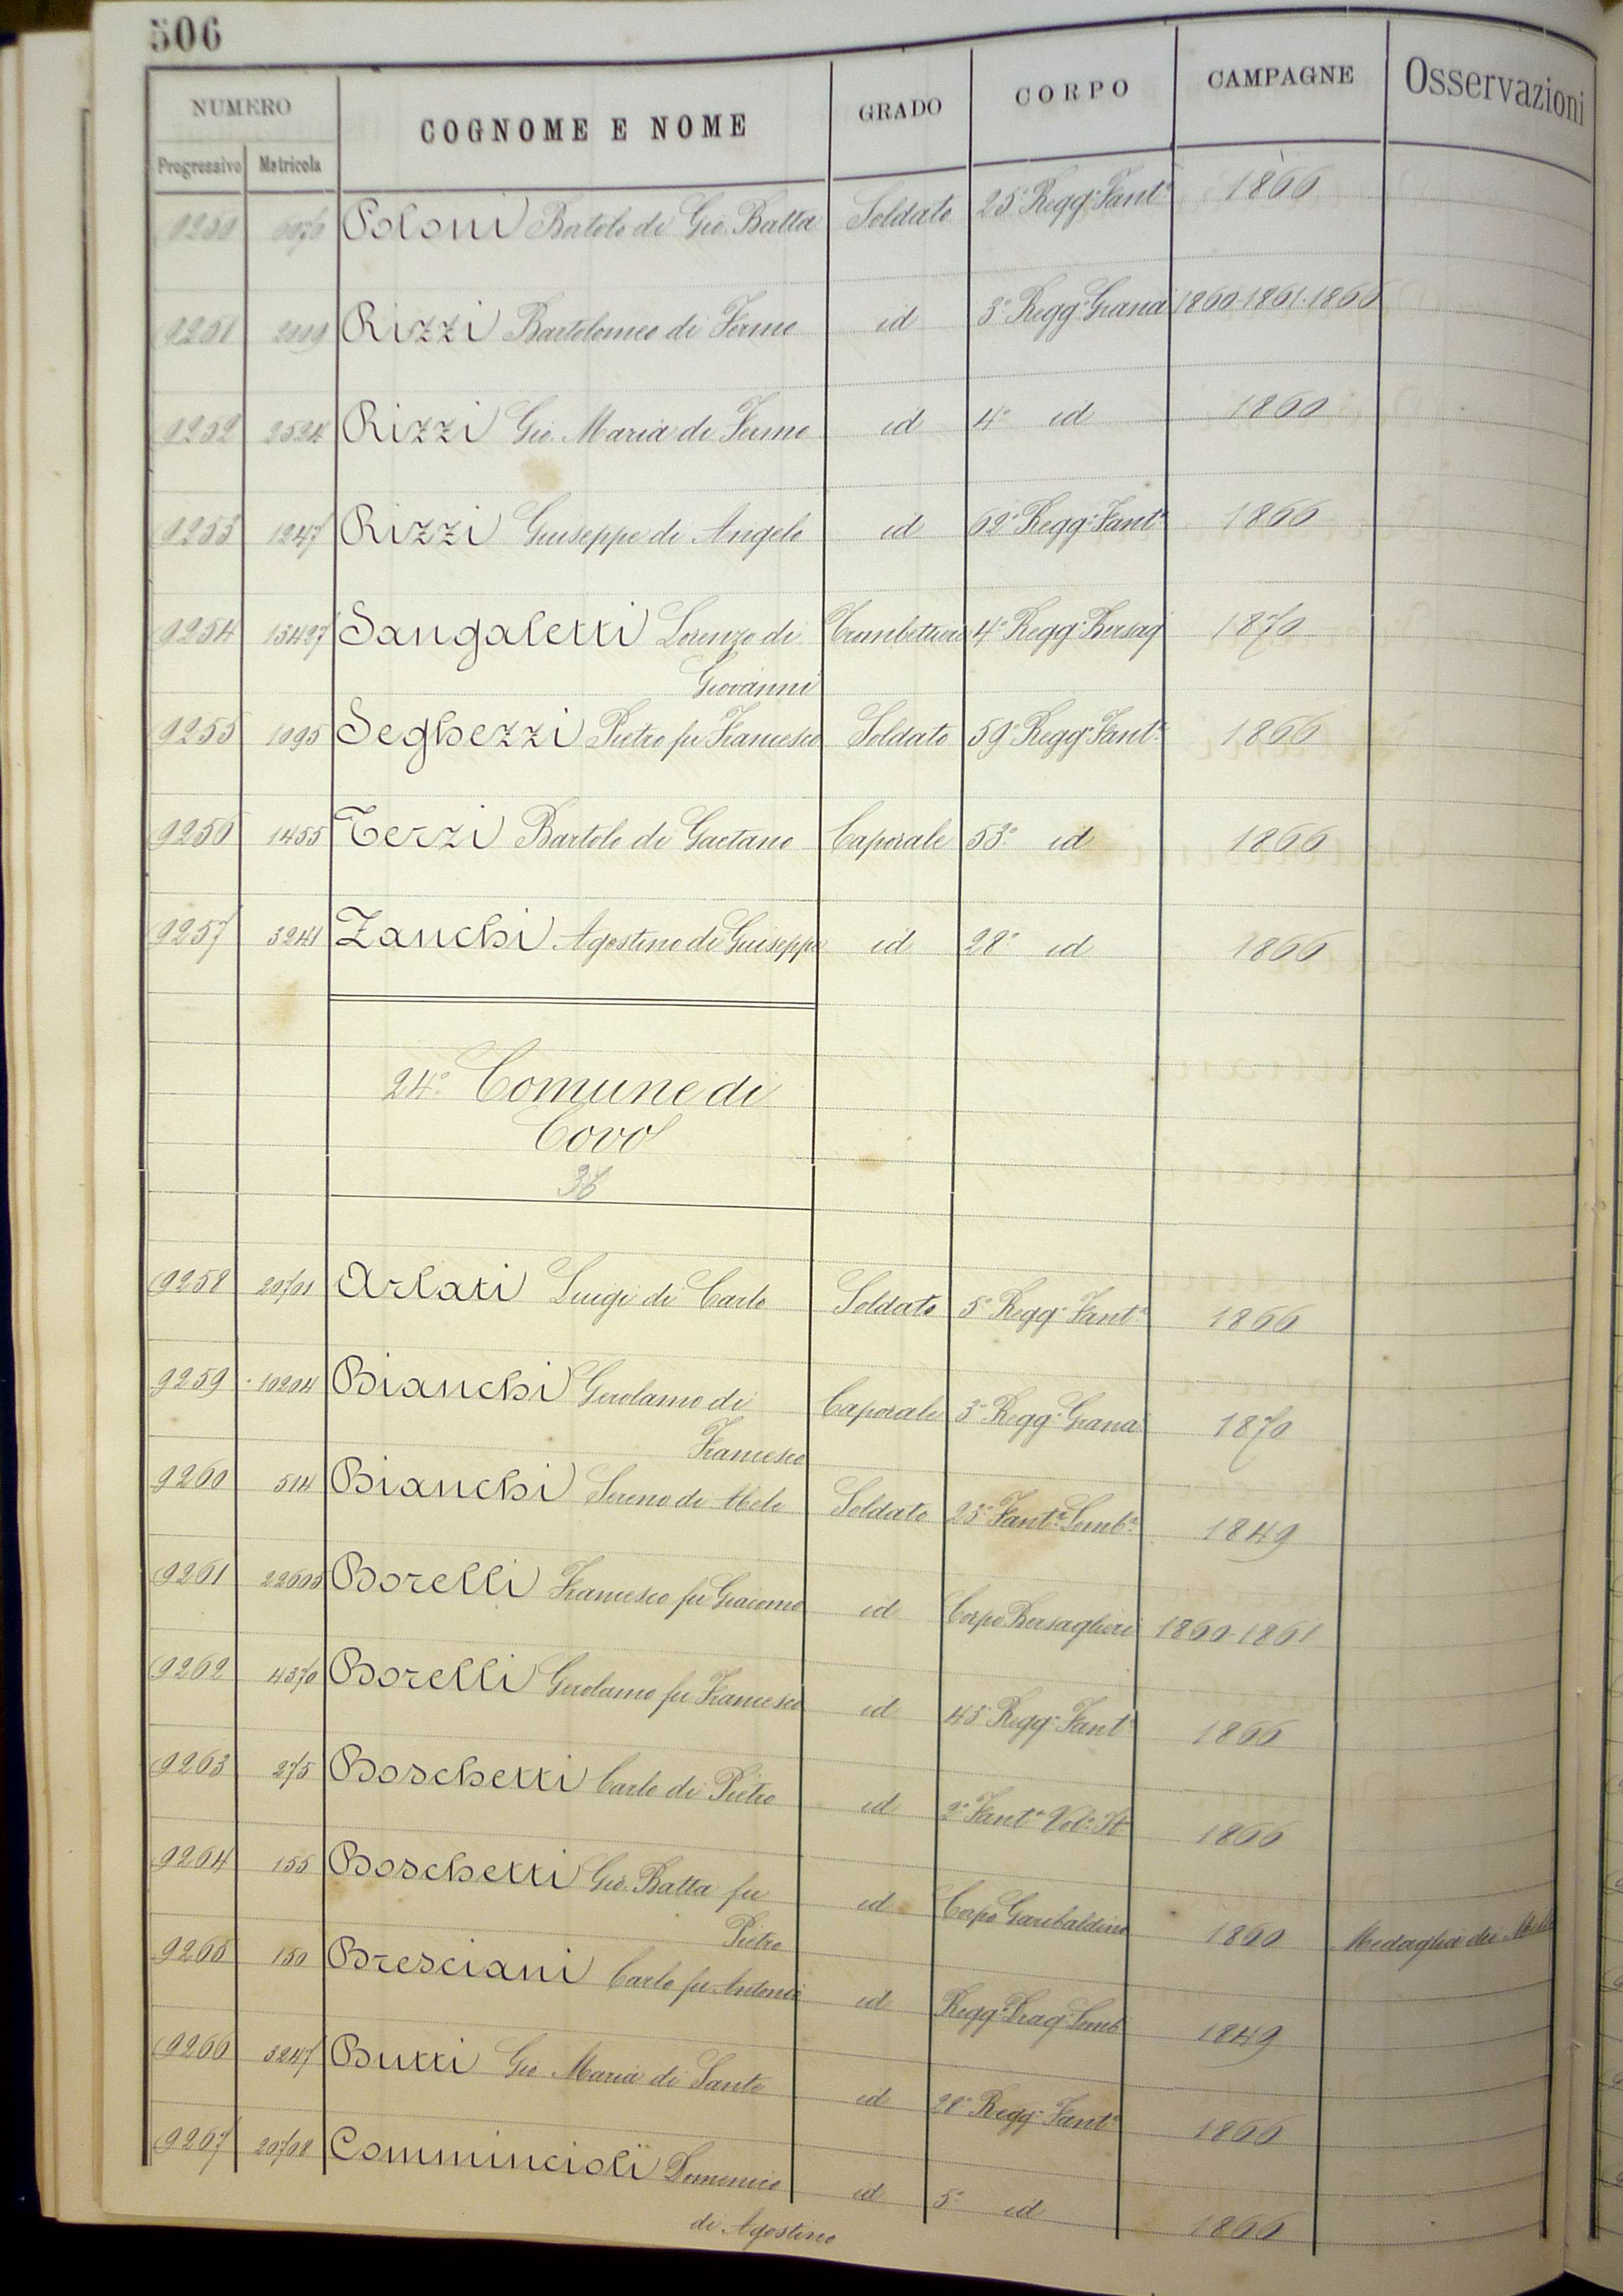 506
NUMERO COGNOME E NOME GRADO CORPO CAMPAGNE Osservazioni
Progressivo Matricola
9250 Poloni Bortolo di Gio. Batta Soldato 25° Regg.° Fant.ª 1866
9251 Rizzi Bartolomeo di Fermo id 3° Regg.° Grana 1860-1861-1866
9252 2524 Rizzi Gio. Maria di Fermo id 4° id 1860
9253 1247 Rizzi Giuseppe di Angelo id 62° Regg.° Fant.ª 1866
9254 13427 Sangaletti Lorenzo di Trombettiere 4° Regg.° Bersag 1870
Giovanni
9255 1095 Seghezzi Pietro fu Francesco Soldato 59° Regg.° Fant.ª 1866
9256 1455 Terzi Bartolo di Gaetano Caporale 53° id 1866
9257 3241 Zanchi Agostino di Giuseppe id 28° id 1866
24.° Comune di
Covo
36
9258 20701 Arlati Luigi di Carlo Soldato 5° Regg.° Fant.ª 1866
9259 10204 Bianchi Gerolamo di Caporale 3° Regg.° Grana 1870
Francesco
9260 514 Bianchi Sereno di Abele Soldato 23° Fant.ª Lomb.ª 1849
9261 Borelli Francesco fu Giacomo id Corpo Bersaglieri 1860-1861
9262 4370 Borelli Gerolamo fu Francesco id 43° Regg.° Fant.ª 1866
9263 275 Boschetti Carlo di Pietro id 2° Fant.ª Vol.i It. 1866
9264 155 Boschetti Gio. Batta fu id Corpo Garibaldino 1860 Medaglia dei Mille
Pietro
9265 150 Bresciani Carlo fu Antonio id Regg.° Drag.i Lomb 1849
9266 3247 Butti Gio. Maria di Santo id 28° Regg.° Fant.ª 1866
9267 20708 Commincioli Domenico id 5° id 1866
di Agostino